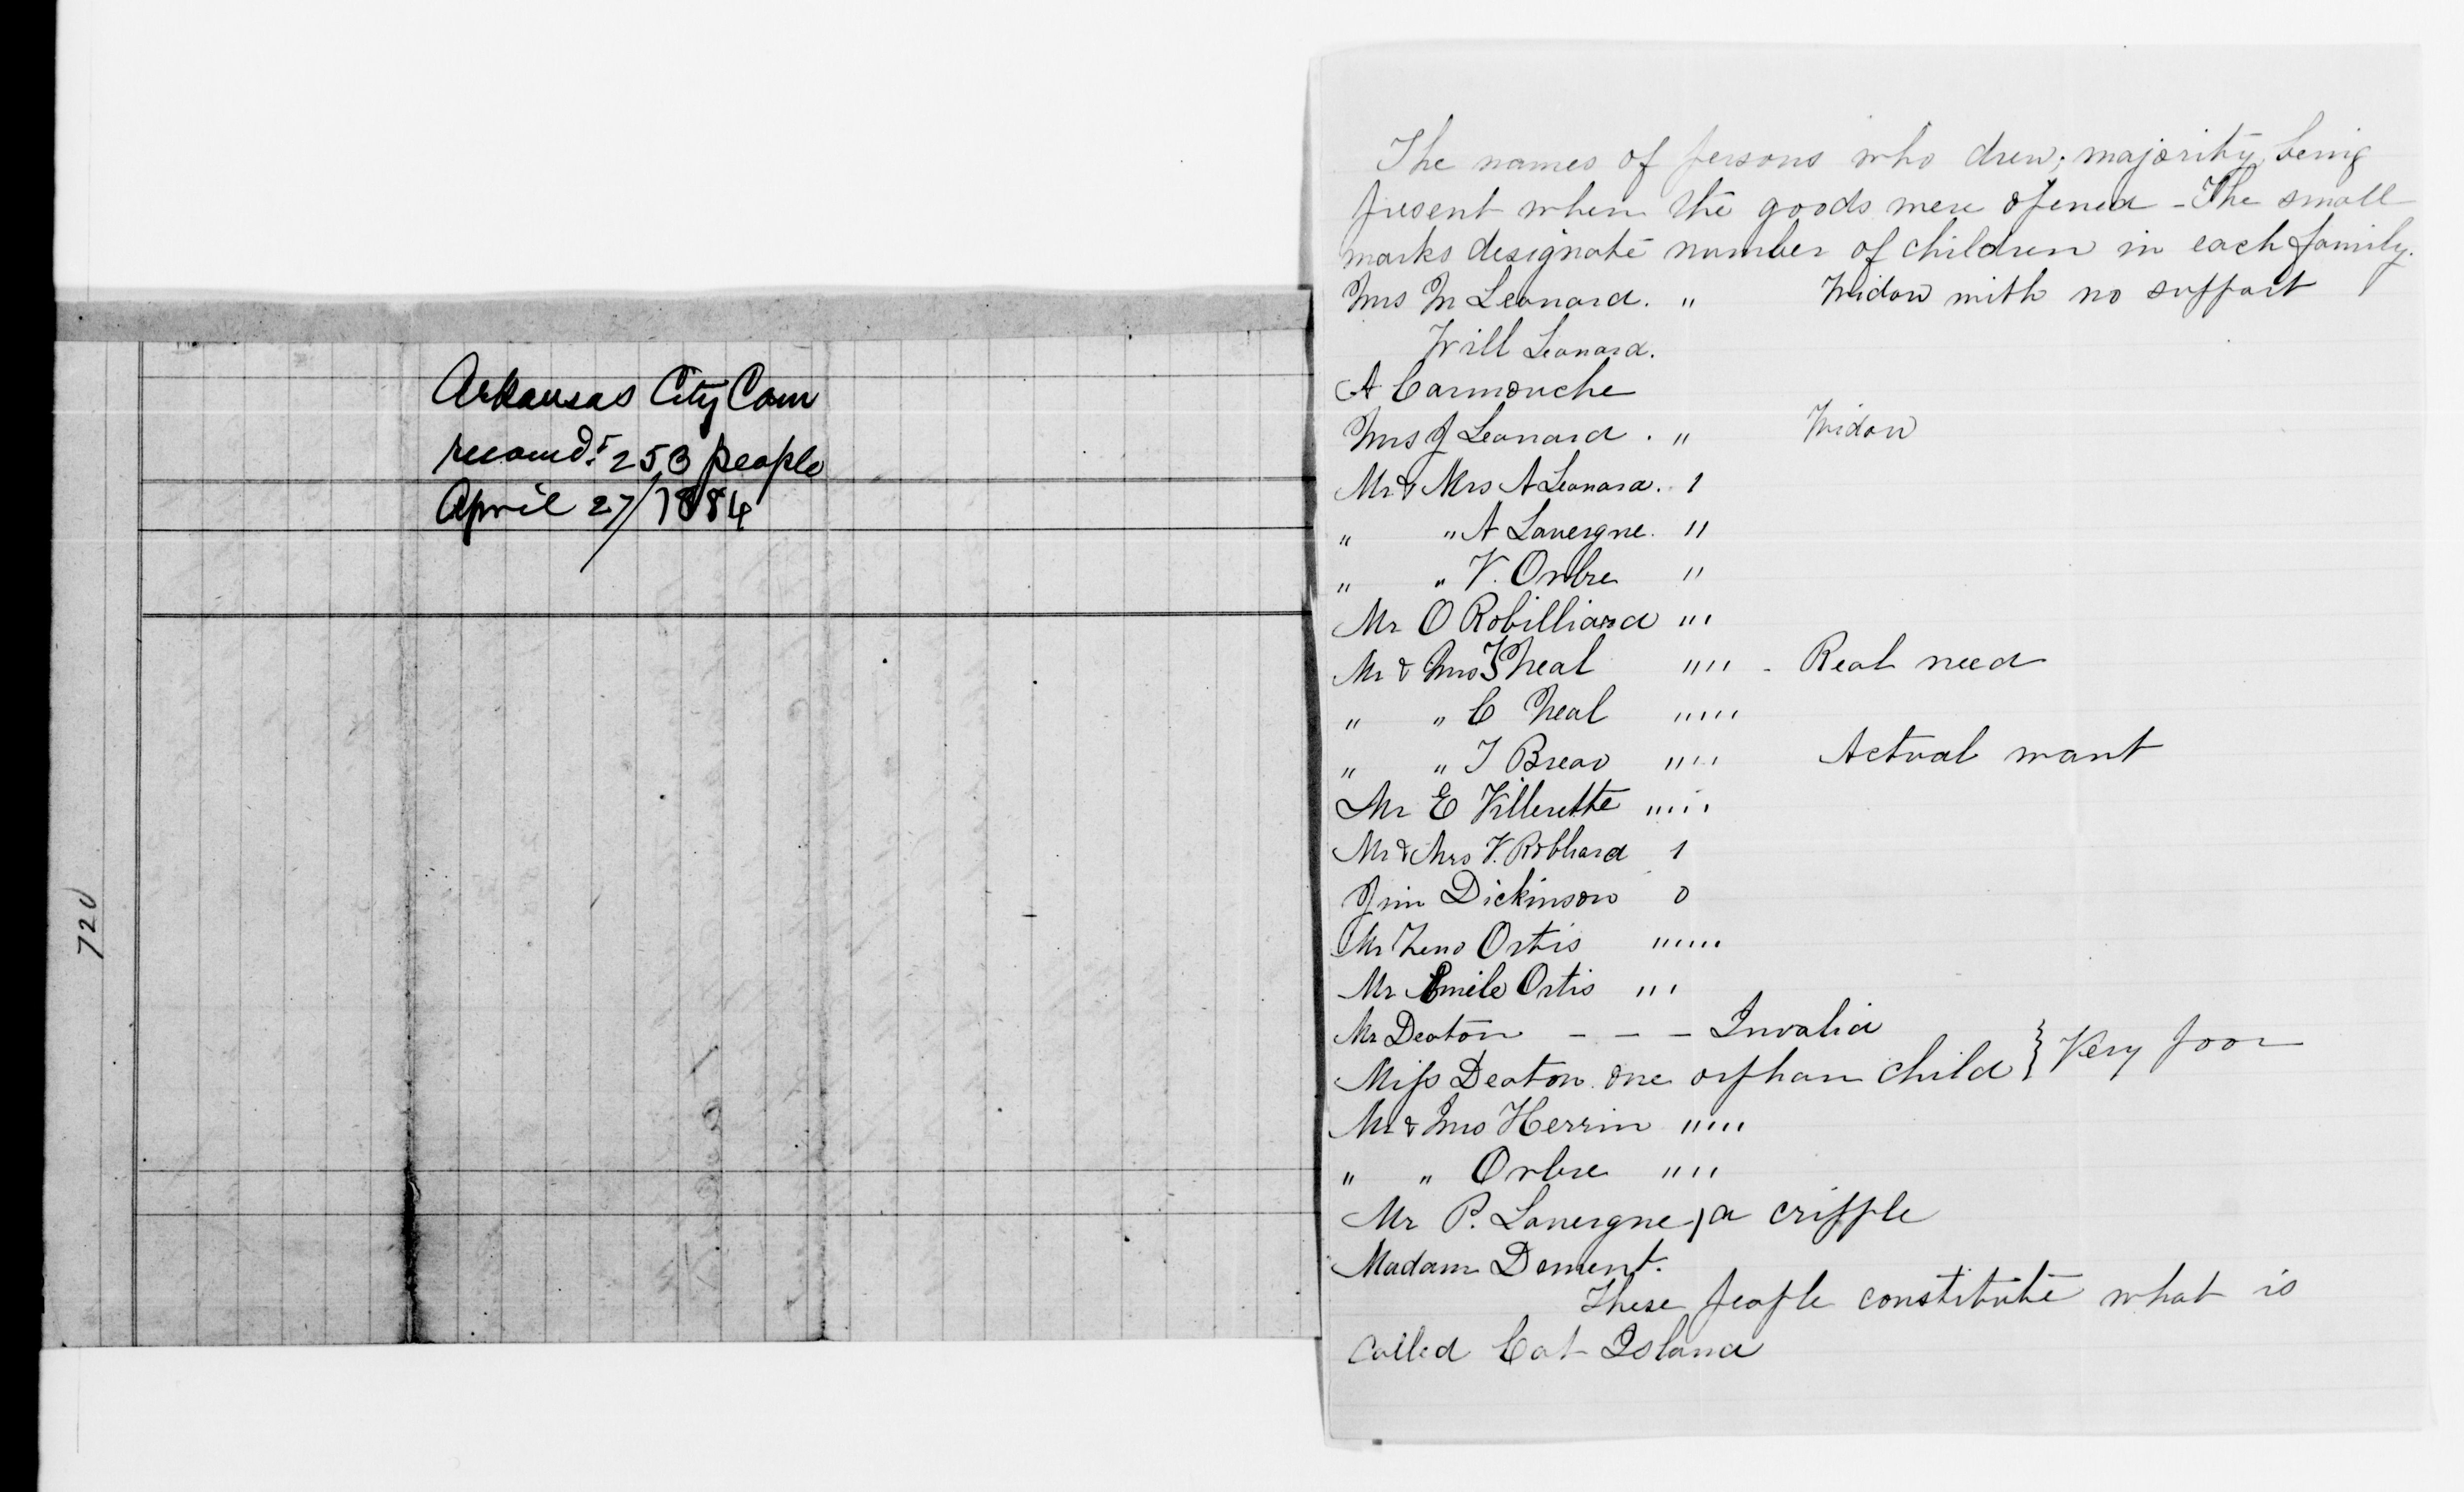 Arkansas City Com
recomdt 253 people
April 27/1884
720
The names of persons who drew; majority being
present when the goods were opened - The small
marks designate number of children in each family.
Mrs M Leonard. " Widow with no support
Will Leonard.
A Carmouche
Mrs J Leonard . " Widow
Mr & Mrs A Leonard. 1
" " A Lavergne. "
" " V. Onbre "
Mr O Robilliard '''
Mr & Mrs Neal '''' - Real need
" " C Neal '''''
" " T Breao '''' Actual want
Mr E Villerette '''''
Mr & Mrs V. Robhard 1
Jim Dickinson 0
Mr Zeno Ortis ''''''
Mr Emile Ortis '''
Mr Deaton - - - Invalid
Miss Deaton one orphan child } Very poor
Mr & Mrs Herrin '''''
" " Onbre ''''
Mr P. Lavergne, a cripple
Madam Dement.
These people constitute what is
called Cat Island